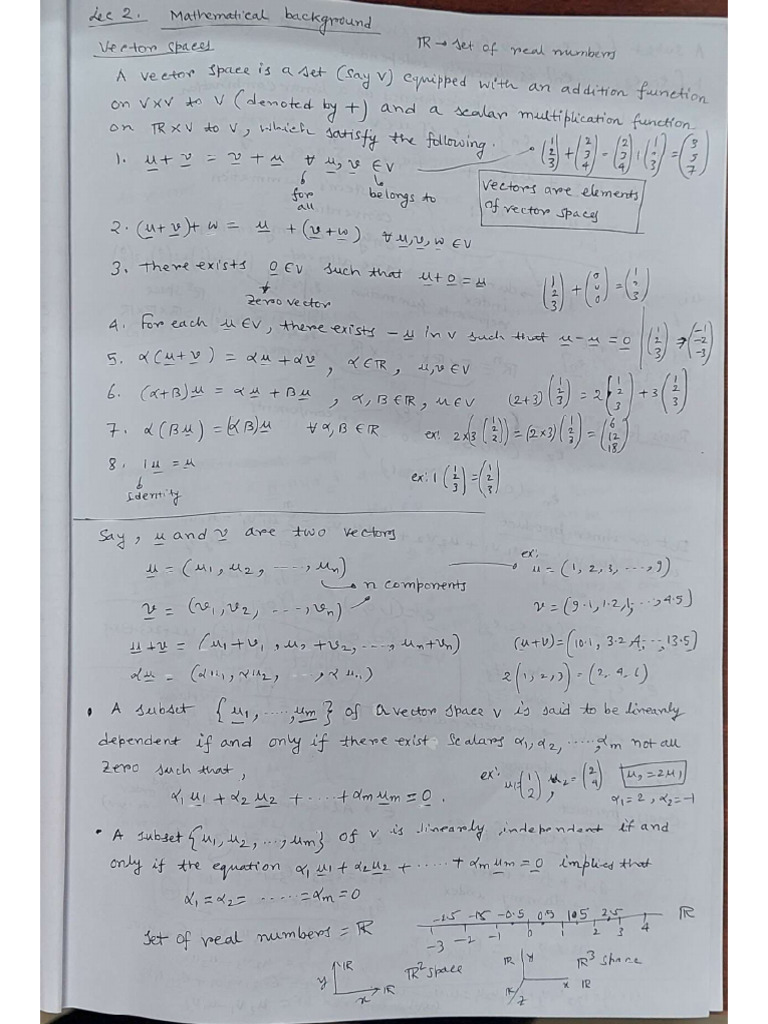 Lec 2. Mathematical background
Vector spaces ℝ → set of real numbers
A vector space is a set (say V) equipped with an addition function
on V×V to V (denoted by +) and a scalar multiplication function
on ℝ×V to V, which satisfy the following.
1. u + v = v + u ∀ u, v ∈ V (1 2 3) + (2 3 4) = (2 3 4) + (1 2 3) = (3 5 7)
for all belongs to
vectors are elements
of vector spaces
2. (u + v) + w = u + (v + w) ∀ u, v, w ∈ V
3. There exists 0 ∈ V such that u + 0 = u (1 2 3) + (0 0 0) = (1 2 3)
zero vector
4. For each u ∈ V, there exists -u in V such that u - u = 0 | (1 2 3) ⇒ (-1 -2 -3)
5. α(u + v) = αu + αv, α ∈ ℝ, u, v ∈ V
6. (α+β)u = αu + βu, α, β ∈ ℝ, u ∈ V (2+3)(1 2 3) = 2(1 2 3) + 3(1 2 3)
7. α(βu) = (αβ)u ∀ α, β ∈ ℝ ex: 2×(3(1 2 2)) = (2×3)(1 2 3) = (6 12 18)
8. 1u = u ex: 1(1 2 3) = (1 2 3)
Identity
Say, u and v are two vectors
ex:
u = (u1, u2, ----, un) u = (1, 2, 3, ---, 9)
n components
v = (v1, v2, ---, vn) v = (9.1, 1.2, 1, --, 4.5)
u + v = (u1+v1, u2+v2, ---, un+vn) (u+v) = (10.1, 3.2, 4, --, 13.5)
αu = (αu1, αu2, ---, αun) 2(1, 2, 3) = (2, 4, 6)
• A subset {u1, ---, um} of a vector space V is said to be linearly
dependent if and only if there exist scalars α1, α2, ---, αm not all
zero such that,
ex: u1=(1 2), u2=(2 4) u2=2u1
α1u1 + α2u2 + ---- + αmum = 0. α1=2, α2=-1
• A subset {u1, u2, ---, um} of V is linearly independent if and
only if the equation α1u1 + α2u2 + ---- + αmum = 0 implies that
α1 = α2 = ---- = αm = 0
Set of real numbers = ℝ
-2.5 -1.5 -0.5 0.5 1.5 2.5 ℝ
-3 -2 -1 0 1 2 3 4
y ℝ x ℝ ℝ² space
ℝ y x ℝ ℝ z ℝ³ space